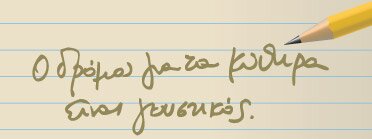 Ο δρόμος για τα Κύθηρα
είναι γευστικός.